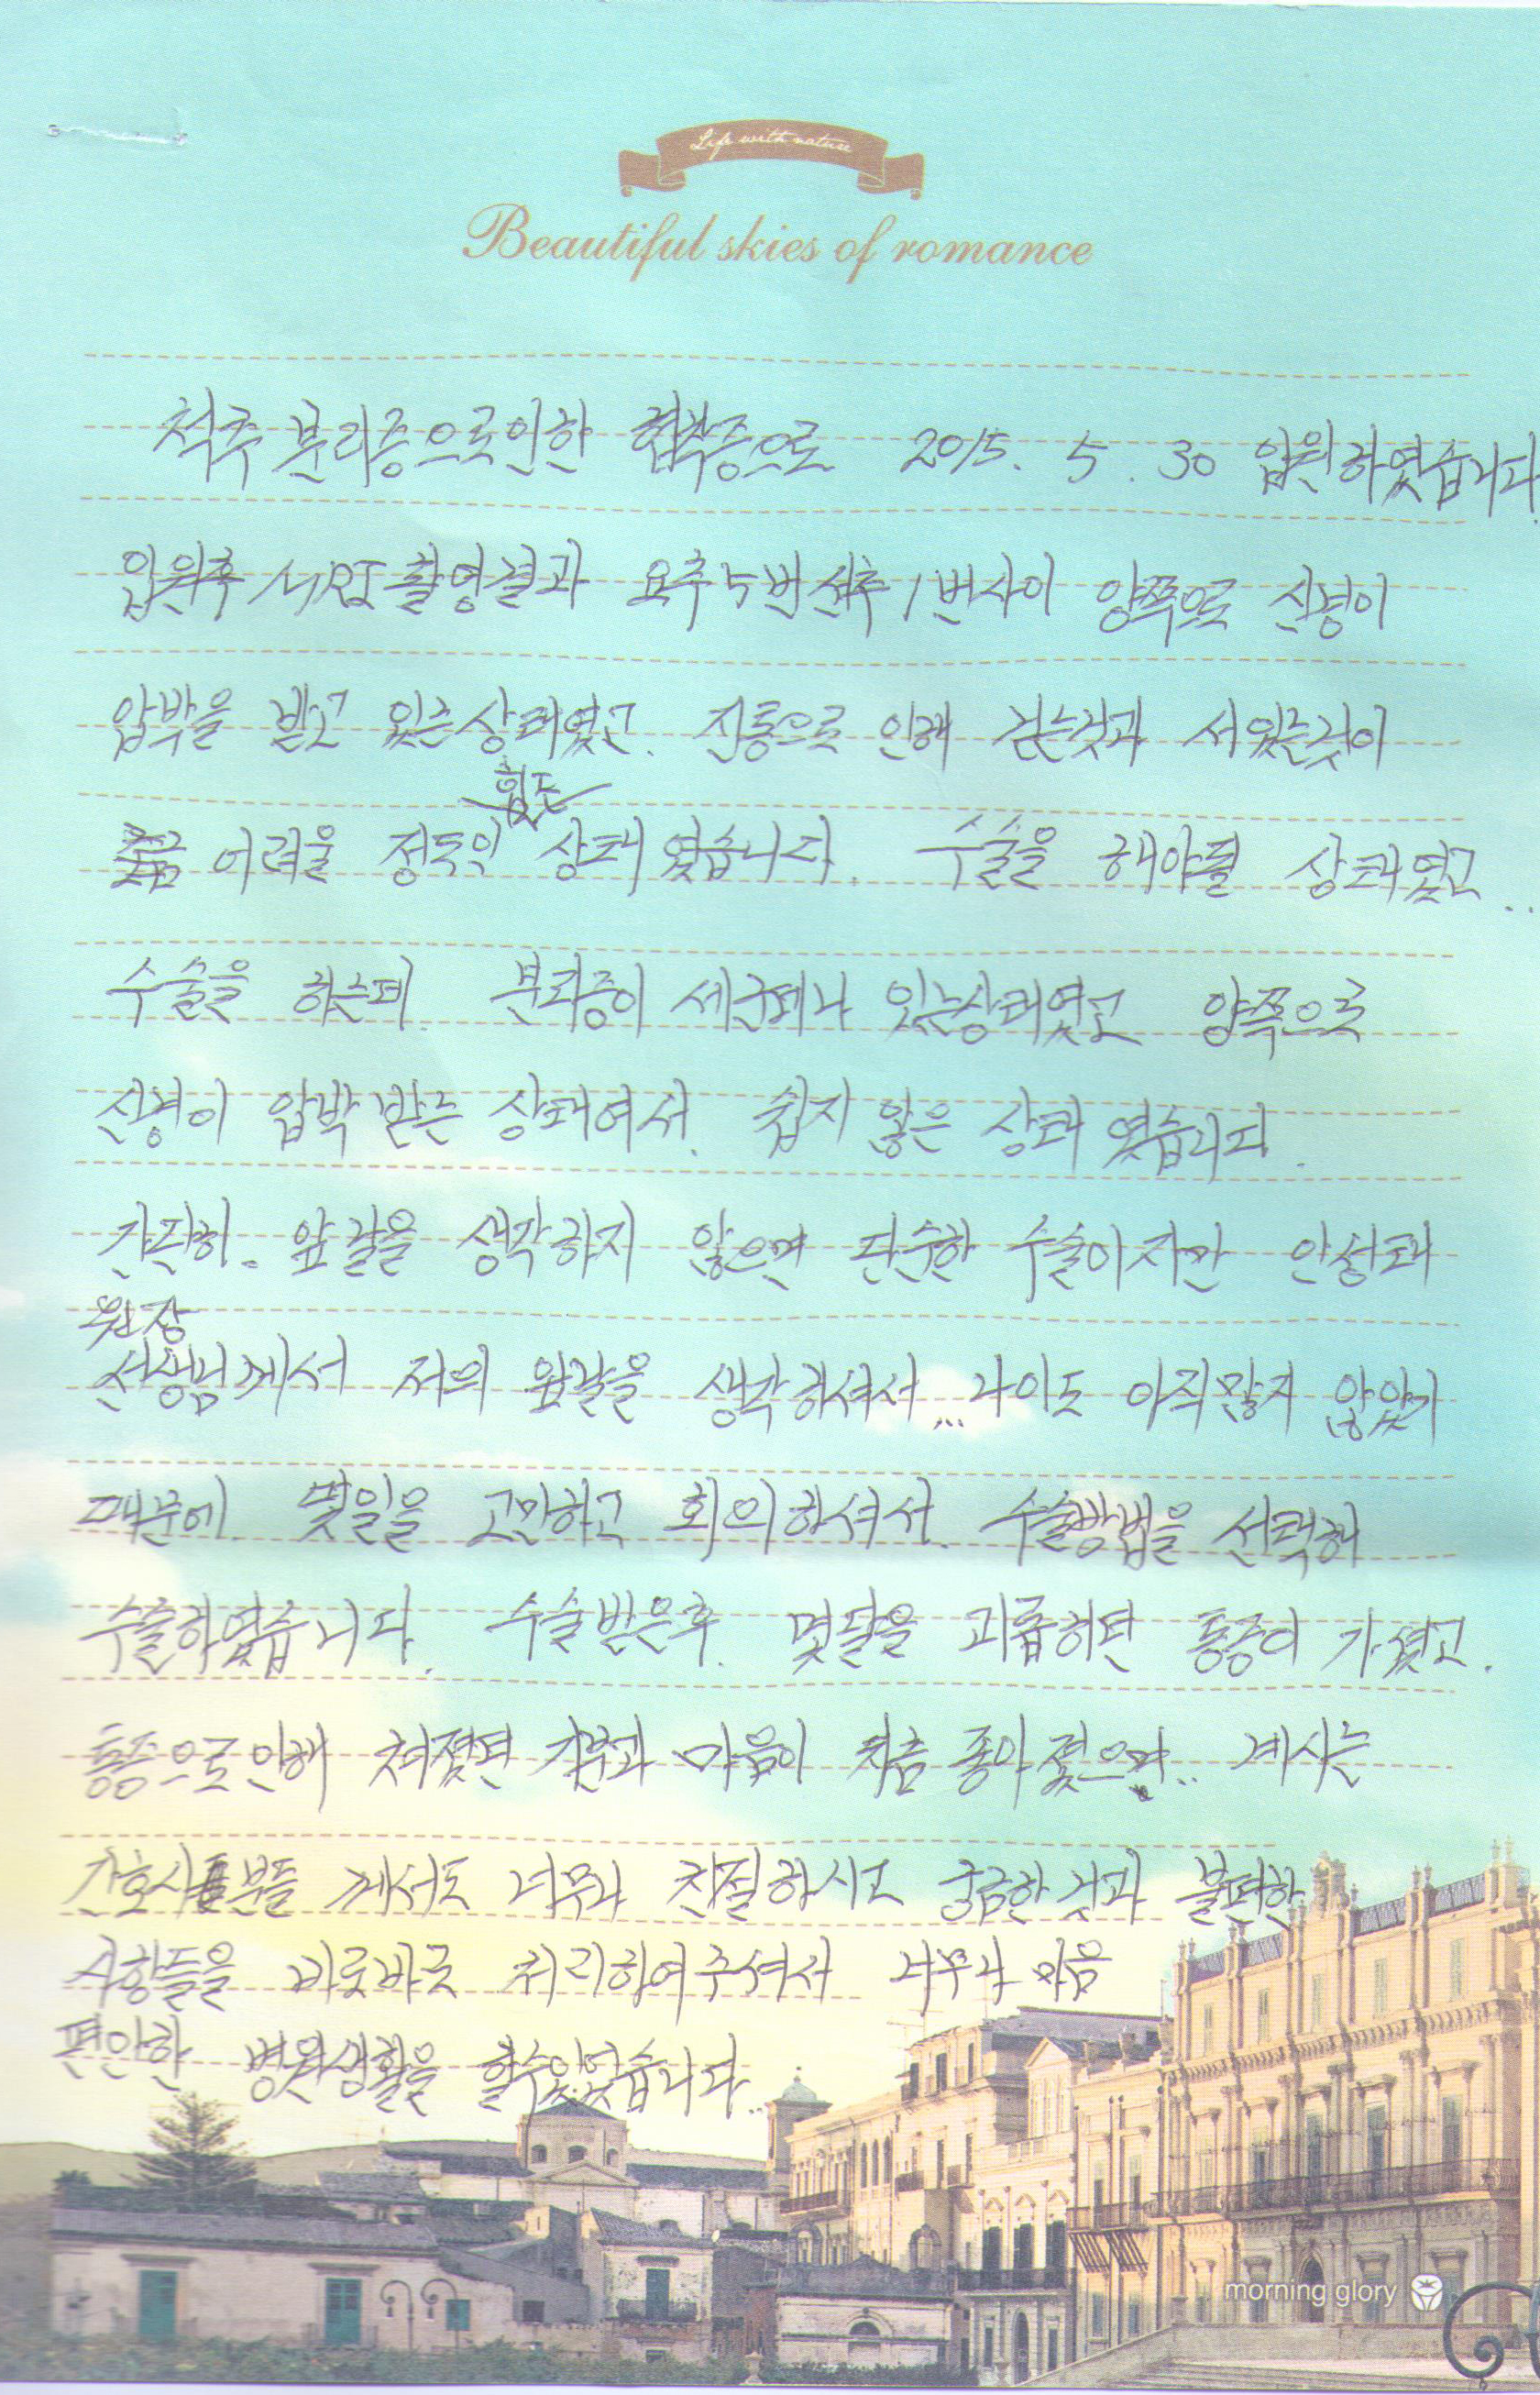 Life with nature
Beautiful skies of romance
척추 분리증으로인한 협착증으로 2015. 5. 30 입원하였습니다.
입원후 MRI 촬영결과 요추 5번 선추 1번사이 양쪽으로 신경이
압박을 받고 있는상태였고. 진통으로 인해 걷는것과 서있는것이
힘든
조금 어려울 정도의 상태 였습니다. 수술을 해야될 상태였고..
수술을 하는데. 분리증이 세군데나 있는상태였고 양쪽으로
신경이 압박 받는 상태여서. 쉽지 않은 상태 였습니다.
간단히. 앞날을 생각하지 않으면 단순한 수술이지만 안성태
원장
선생님께서 저의 앞날을 생각하셔서... 나이도 아직많지 않았기
때문에. 몇일을 고민하고 회의하셔서. 수술방법을 선택해
수술하였습니다. 수술받은후. 몇달을 괴롭히던 통증이 가셨고.
통증으로 인해 쳐졌던 기분과 마음이 차츰 좋아 젔으며.. 계시는
간호사분들 께서도 너무나 친절하시고 궁금한 것과 불편한
사항들을 바로바로 처리하여주셔서 너무나 마음
편안한 병원생활을 할수있었습니다..
morning glory